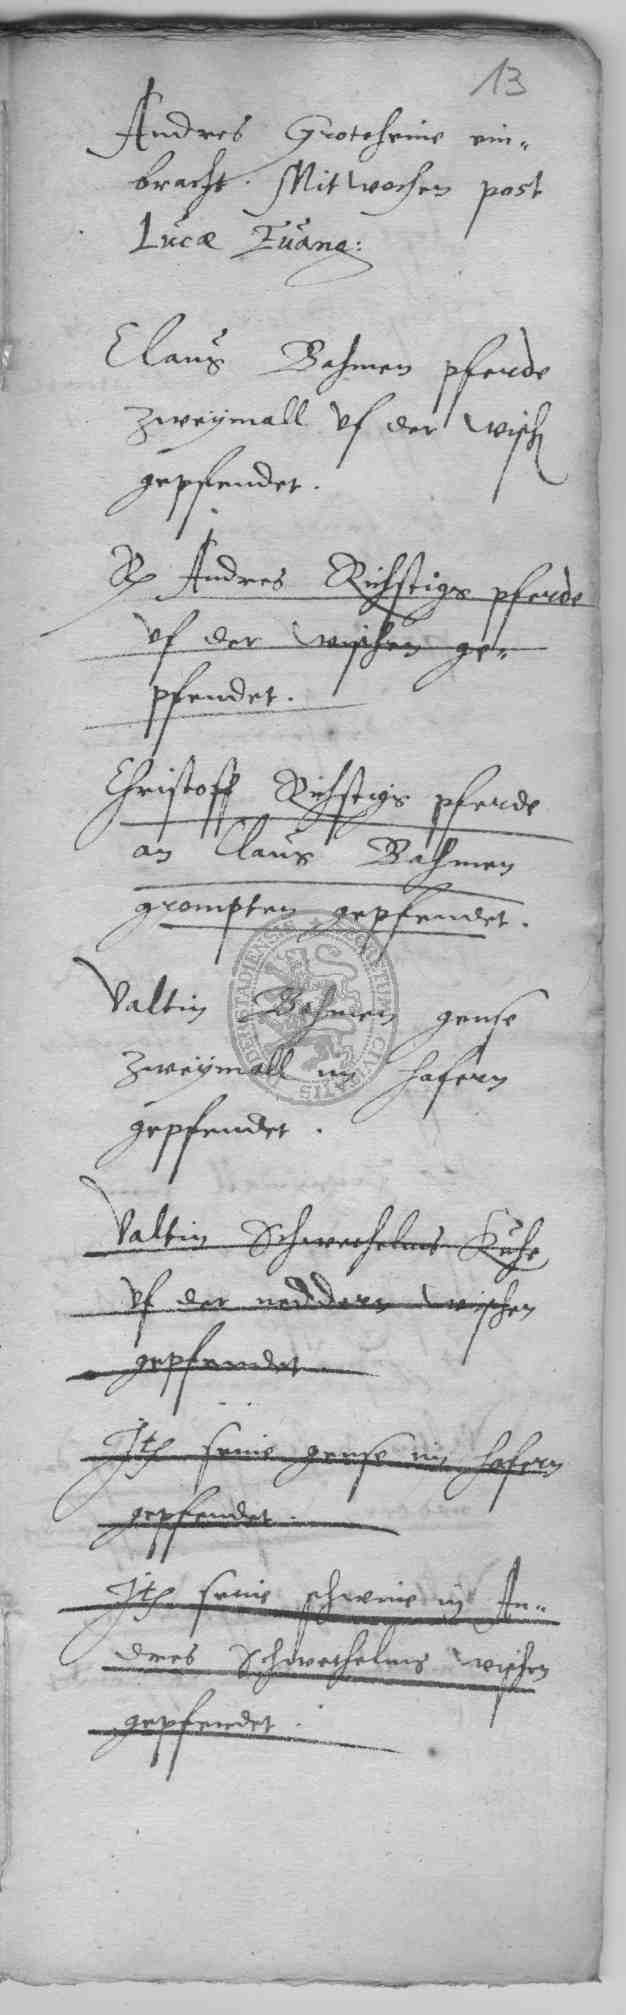 13
Andres Groteheine ein-
bracht. Mitwochen post
Lucæ Euang:
Claus Bahmen pferde
zweymall vf der wisch
gepfendet.
Andres Richstigs pferde
vf der wischen ge-
pfendet.
Christoff Richstigs pferde
an Claus Bahmen
grompten gepfendet.
Valtin Bahmen gense
zweymall im hafern
gepfendet.
Valtin Schwethelms Kuhe
vf der neddern wischen
gepfendet.
Jt seine gense im hafern
gepfendet.
Jt seine schweine in An-
dres Schwethelms wischen
gepfendet.